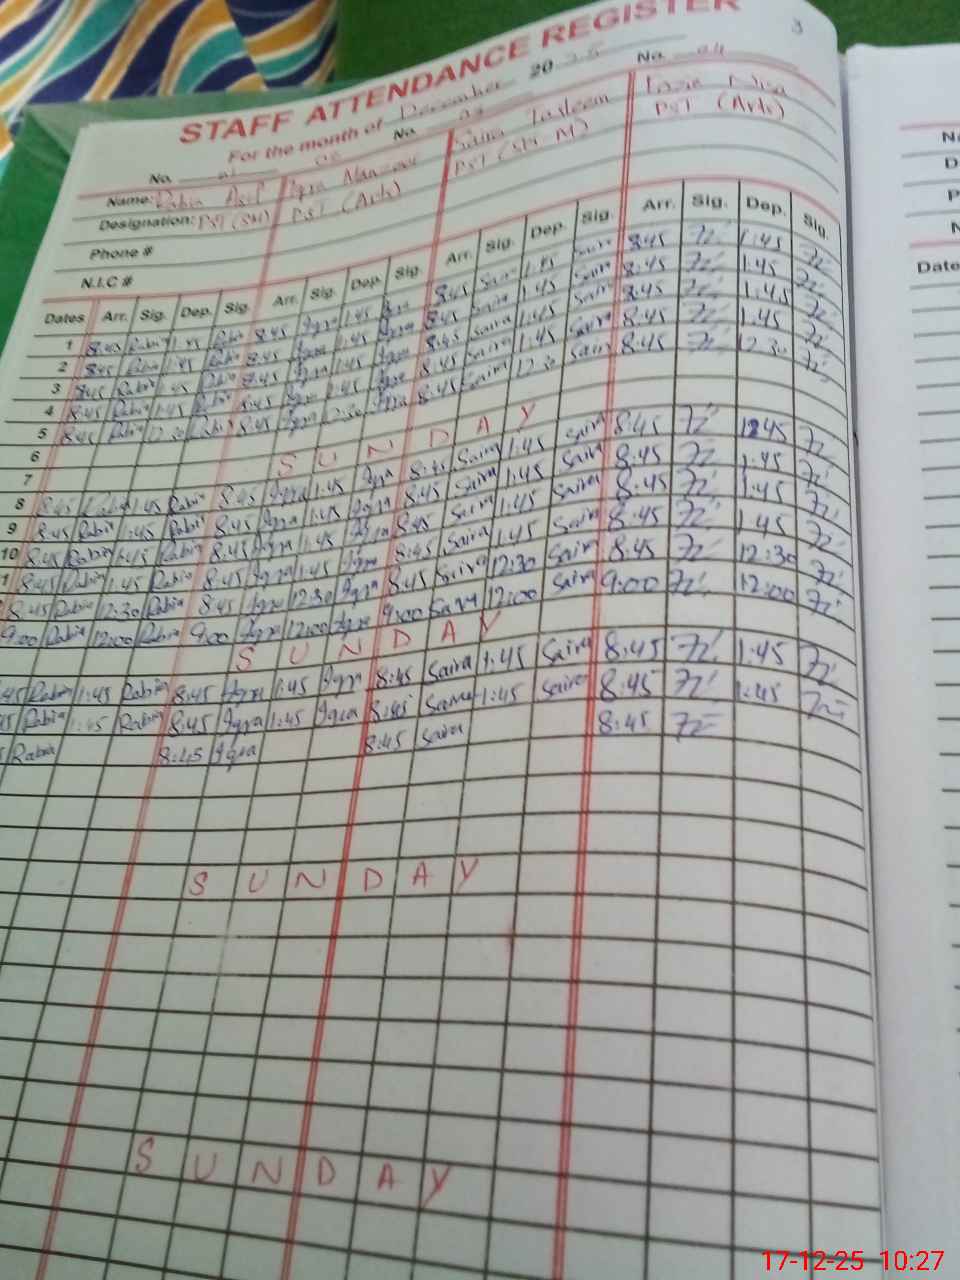 3
STAFF ATTENDANCE REGISTER
For the month of December 2025
No. 01 02 No. 03 No. 04
Name: Rabia Asif Iqra Saira Tasleem Nisa
Designation: PST (SM) PST (Arts) PST (SM-M) PST (Arts)
Phone #
N.I.C #
Dates Arr. Sig. Dep. Sig. Arr. Sig. Dep. Sig. Arr. Sig. Dep. Sig. Arr. Sig. Dep. Sig.
1 8:45 Rabia 1:45 Rabia 8:45 Iqra 1:45 Iqra 8:45 Saira 1:45 Saira 8:45 1:45
2 8:45 Rabia 1:45 Rabia 8:45 Iqra 1:45 Iqra 8:45 Saira 1:45 Saira 8:45 1:45
3 8:45 Rabia 1:45 Rabia 8:45 Iqra 1:45 Iqra 8:45 Saira 1:45 Saira 8:45 1:45
4 8:45 Rabia 1:45 Rabia 8:45 Iqra 1:45 Iqra 8:45 Saira 1:45 Saira 8:45 1:45
5 8:45 Rabia 12:30 Rabia 8:45 Iqra 12:30 Iqra 8:45 Saira 12:30 Saira 8:45 12:30
6
7 SUNDAY
8 8:45 Rabia 1:45 Rabia 8:45 Iqra 1:45 Iqra 8:45 Saira 1:45 Saira 8:45 1:45
9 8:45 Rabia 1:45 Rabia 8:45 Iqra 1:45 Iqra 8:45 Saira 1:45 Saira 8:45 1:45
10 8:45 Rabia 1:45 Rabia 8:45 Iqra 1:45 Iqra 8:45 Saira 1:45 Saira 8:45 1:45
1 8:45 Rabia 1:45 Rabia 8:45 Iqra 1:45 Iqra 8:45 Saira 1:45 Saira 8:45 1:45
8:45 Rabia 12:30 Rabia 8:45 Iqra 12:30 Iqra 8:45 Saira 12:30 Saira 8:45 12:30
9:00 Rabia 12:00 Rabia 9:00 Iqra 12:00 Iqra 9:00 Saira 12:00 Saira 9:00 12:00
SUNDAY
45 Rabia 1:45 Rabia 8:45 Iqra 1:45 Iqra 8:45 Saira 1:45 Saira 8:45 1:45
45 Rabia 1:45 Rabia 8:45 Iqra 1:45 Iqra 8:45 Saira 1:45 Saira 8:45 1:45
Rabia 8:45 Iqra 8:45 Saira 8:45
SUNDAY
SUNDAY
Date
17-12-25 10:27